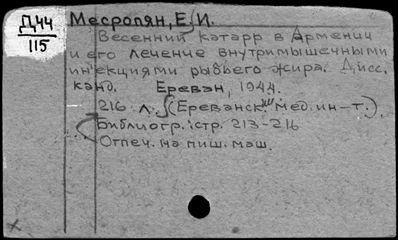 Д44
115
Месропян, Е. И.
Весенний катарр в Армении
и его лечение внутримышечными
ин'екциями рыбьего жира. Дисс.
канд. Ереван, 1944.
216 л. (Ереванский мед. ин-т.).
Библиогр.: стр. 213-216
Отпеч. на пиш. маш.